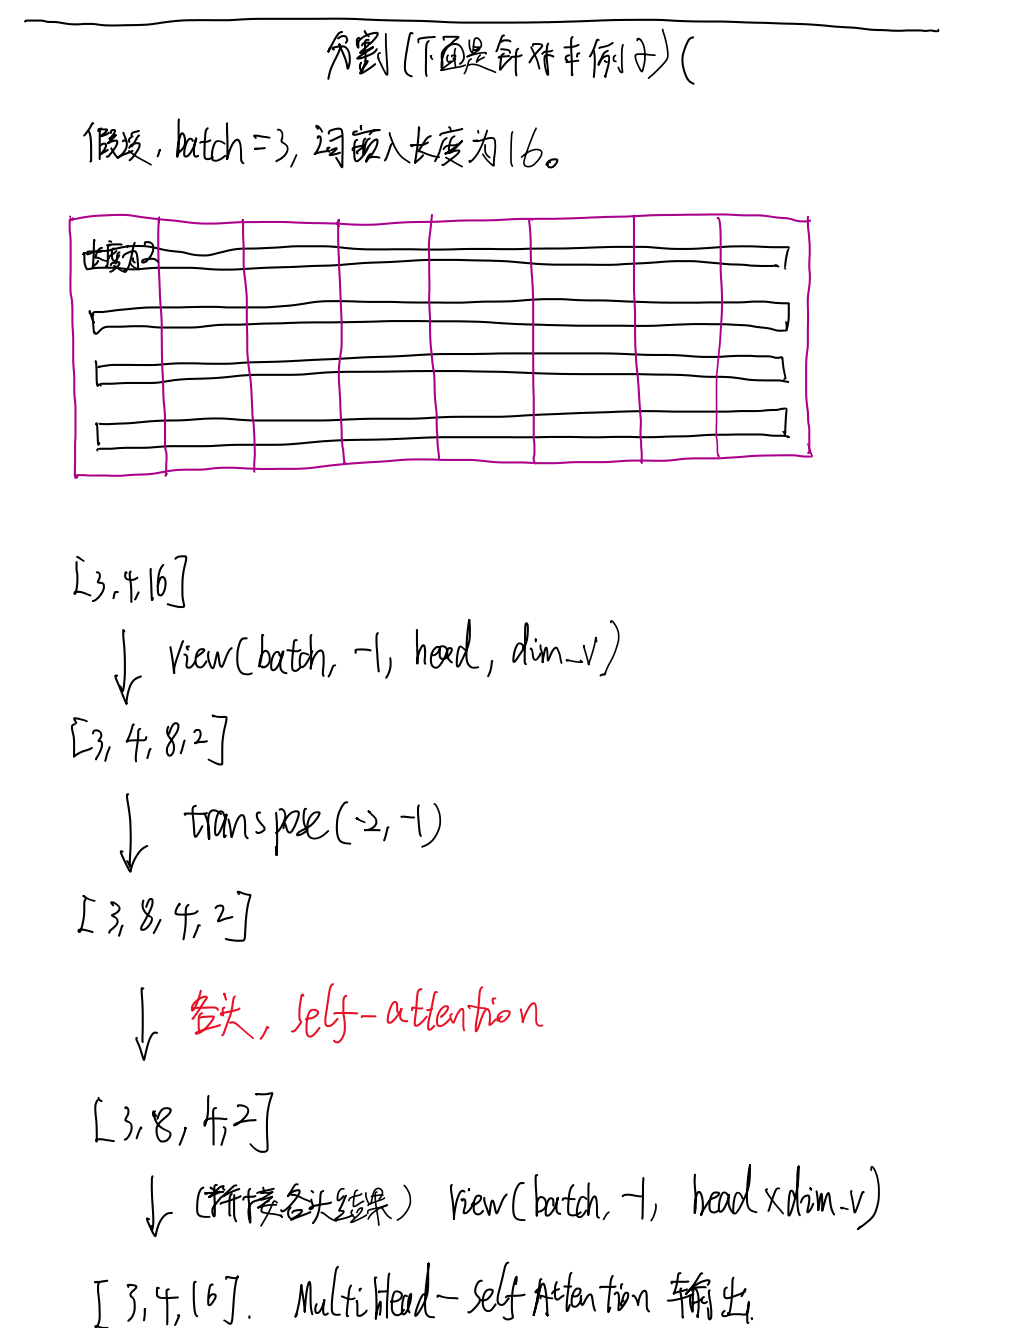 分割(下面是针对本例子)(
假设,batch=3,词嵌入长度为16。
长度为2
[3,4,16]
view(batch, -1, head, dim_v)
[3, 4, 8, 2]
transpose(-2, -1)
[3, 8, 4, 2]
各头, self-attention
[3, 8, 4, 2]
(拼接各头结果) view(batch, -1, head×dim_v)
[3, 4, 16]. MultiHead-self Attention 输出.